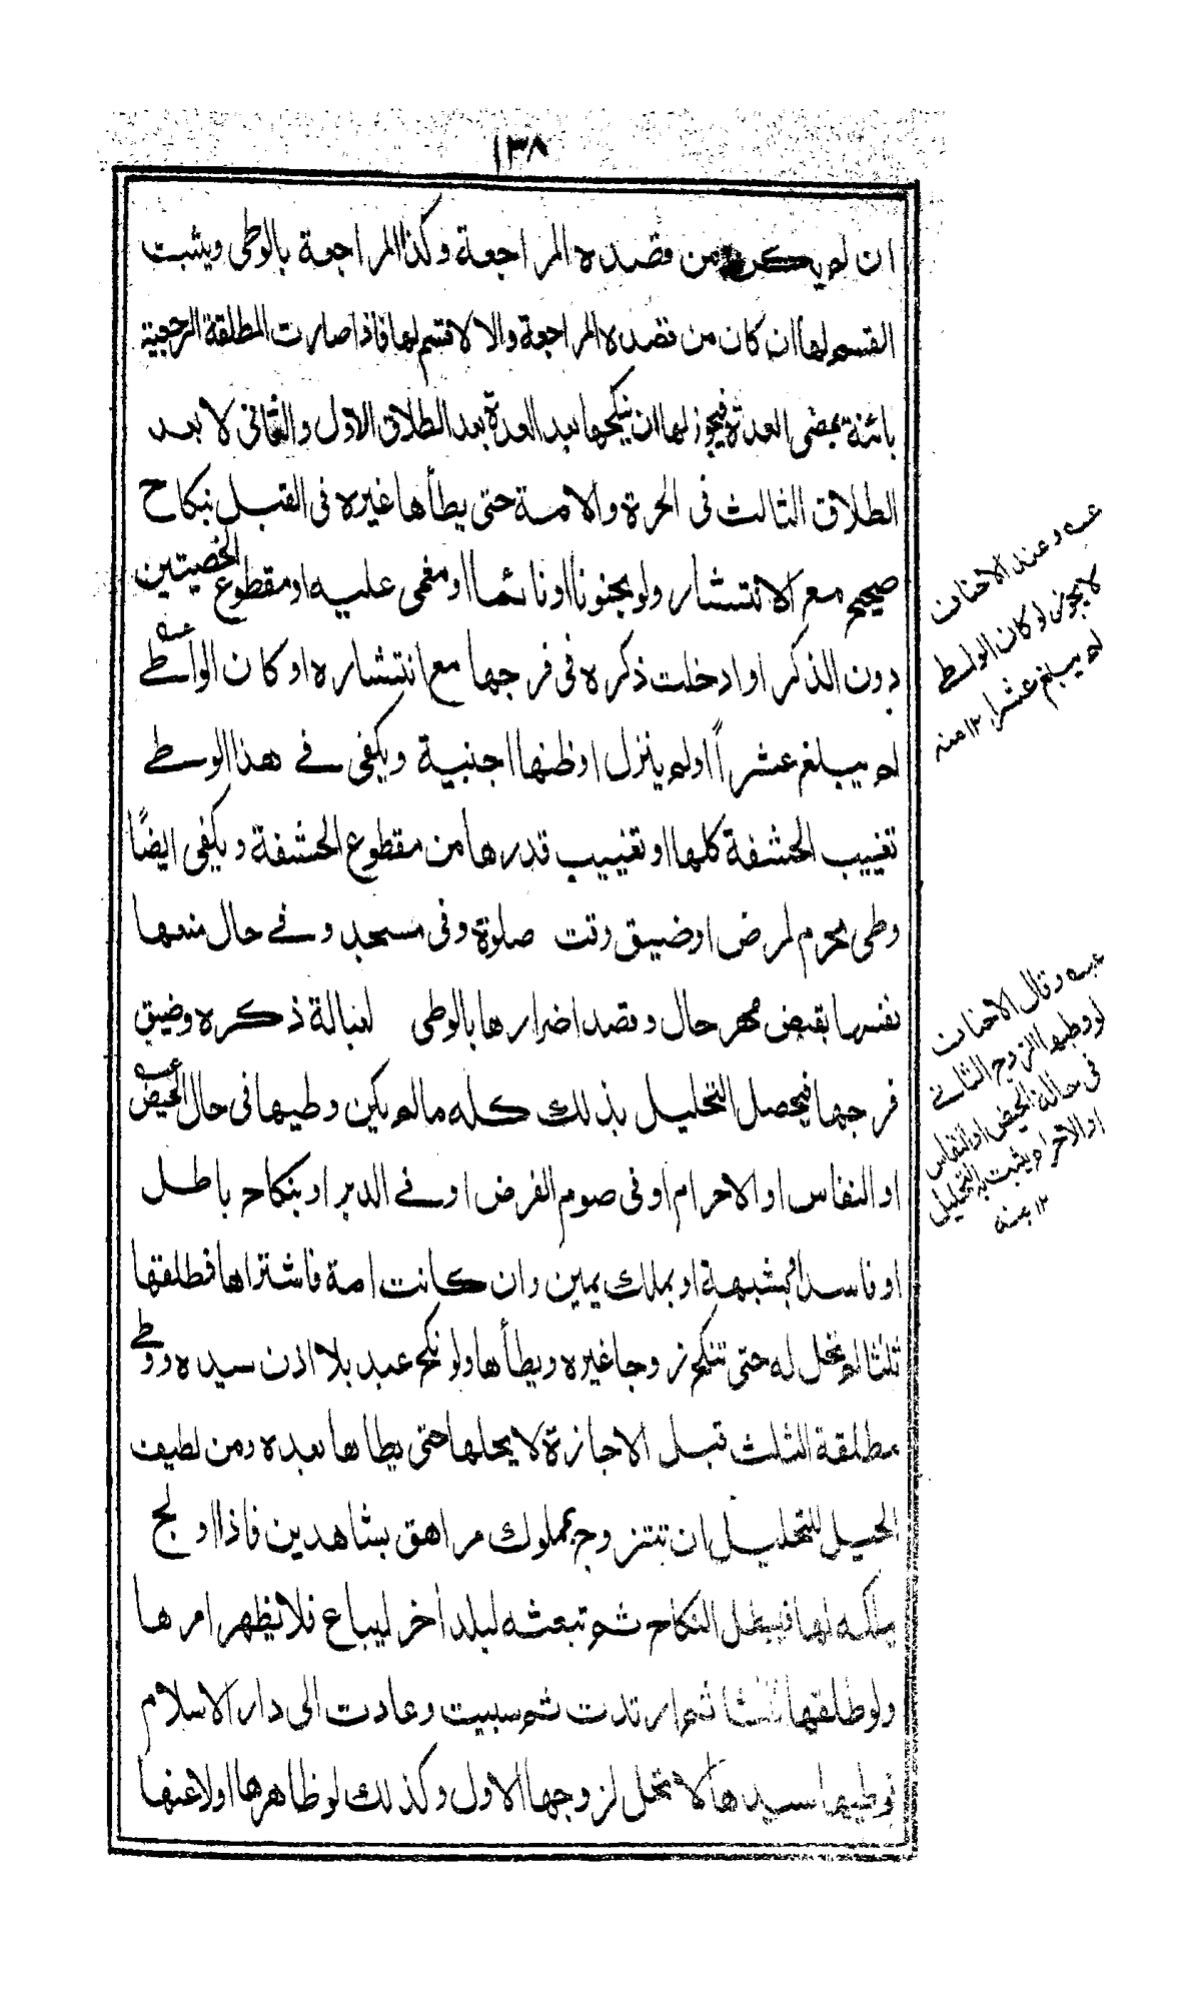 ١٣٨
ان لم يكن من قصده المراجعة وكذا المراجعة بالوطى ويثبت
القسم لها ان كان من قصده المراجعة والا لا قسم لها فاذا صارت المطلقة الرجعية
بائنة بمضى العدة فيجوز لها ان ينكحها بعد العدة بعد الطلاق الاول والثانى لا بعد
الطلاق الثالث فى الحرة والامة حتى يطأها غيره فى القبل بنكاح
صحيح مع الانتشار ولو مجنونا او نائما او مغمى عليه او مقطوع الخصيتين
دون الذكر او ادخلت ذكره فى فرجها مع انتشاره او كان الواطى عـه
لم يبلغ عشراً او لم ينزل او ظنها اجنبية ويكفى فى هذا الوطى
تغييب الحشفة كلها او تغييب قدرها من مقطوع الحشفة ويكفى ايضًا
وطى محرم لمرض او ضيق وقت صلوة وفى مسجد وفى حال منعها
نفسها بقبض مهر حال وقصد اضرارها بالوطى لعبالة ذكره وضيق
فرجها فيحصل التحليل بذلك كله ما لم يكن وطيها فى حال الحيض عـه
او النفاس او الاحرام او فى صوم الفرض او فى الدبر او بنكاح باطل
او فاسد او بشبهة او بملك يمين وان كانت امة فاشتراها فطلقها
ثلثا لم تحل له حتى تنكح زوجا غيره ويطأها ولو نكح عبد بلا اذن سيده ووطى
مطلقة الثلث قبل الاجازة لا يحلها حتى يطاها بعده ومن لطيف
الحيل للتحليل ان تتزوج بمملوك مراهق بشاهدين فاذا اولج
يملكه لها فيبطل النكاح ثم تبعثه لبلد أخر ليباع فلا يظهر امرها
ولو طلقها ثلثا ثم ارتدت ثم سبيت وعادت الى دار الاسلام
فوطيها سيدها لا تحل لزوجها الاول وكذلك لو ظاهرها او لاعنها
عـه وعند الاحناف
لا يجوز لو كان الواطى
لم يبلغ عشرا ١٢ منه
عـه وقال الاحناف
لو وطيها الزوج الثانى
فى حالة الحيض او النفاس
او الاحرام يثبت به التحليل
١٢ منه